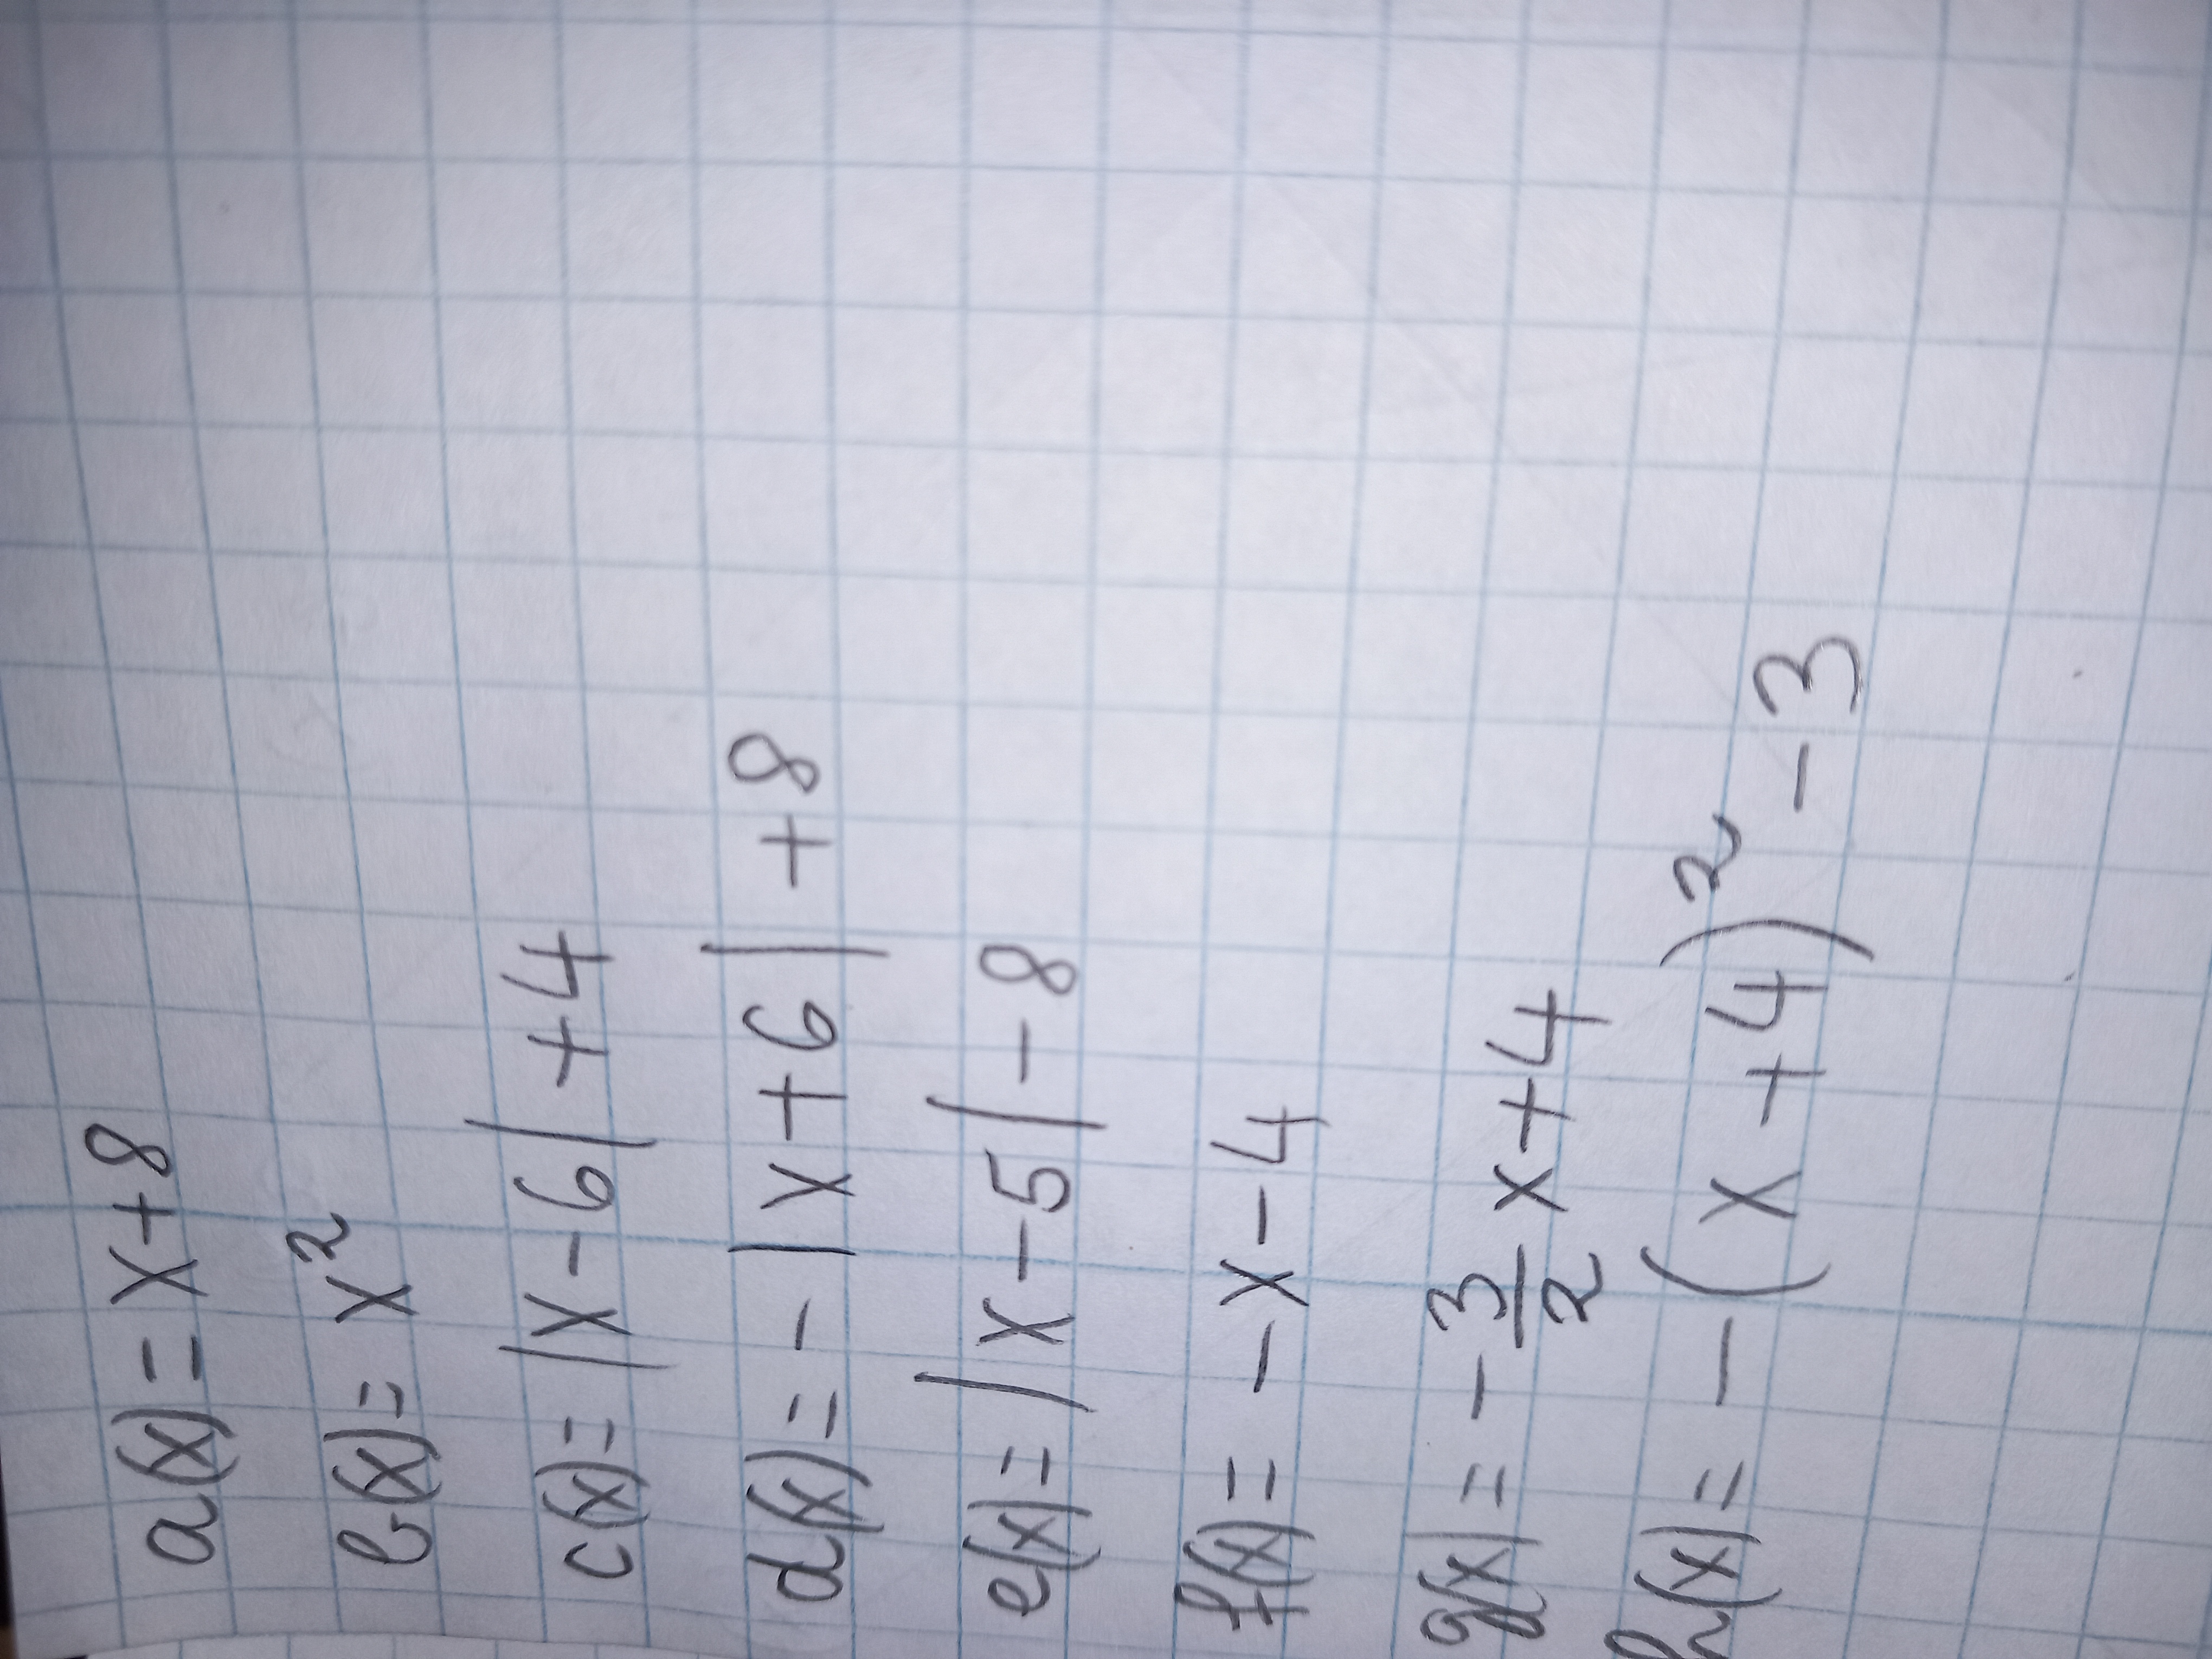 a(x) = x+8
b(x) = x²
c(x) = |x-6| +4
d(x) = - |x+6| +8
e(x) = |x-5| -8
f(x) = -x-4
g(x) = -3/2 x+4
h(x) = -(x+4)² -3